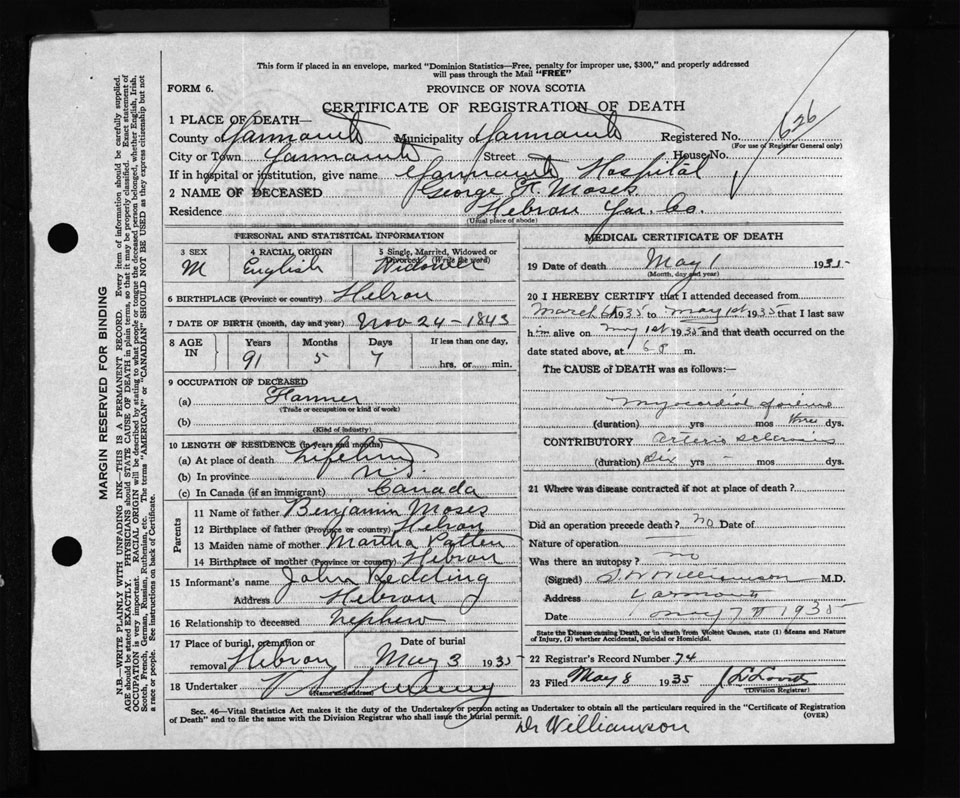 This form if placed in an envelope, marked "Dominion Statistics—Free, penalty for improper use, $300," and properly addressed
will pass through the Mail "FREE"
FORM 6.
PROVINCE OF NOVA SCOTIA
CERTIFICATE OF REGISTRATION OF DEATH
626
1 PLACE OF DEATH—
County of Yarmouth Municipality of Yarmouth Registered No.
(For use of Registrar General only)
City or Town Yarmouth Street House No.
If in hospital or institution, give name Yarmouth Hospital
2 NAME OF DECEASED George H. Moses
Residence Hebron Yar. Co.
(Usual place of abode)
MARGIN RESERVED FOR BINDING
N.B.—WRITE PLAINLY WITH UNFADING INK—THIS IS A PERMANENT RECORD. Every item of information should be carefully supplied.
AGE should be stated EXACTLY. PHYSICIANS should STATE CAUSE OF DEATH in plain terms, so that it may be properly classified. Exact statement of
OCCUPATION is very important. RACIAL ORIGIN will be described by stating to what people or tongue the deceased person belonged, whether English, Irish,
Scotch, French, German, Russian, Ruthenian, etc. The terms "AMERICAN" or "CANADIAN" SHOULD NOT BE USED as they express citizenship but not
a race or people. See instructions on back of Certificate.
PERSONAL AND STATISTICAL INFORMATION
3 SEX 4 RACIAL ORIGIN 5 Single, Married, Widowed or
Divorced (Write the word)
M English Widower
6 BIRTHPLACE (Province or country) Hebron
7 DATE OF BIRTH (month, day and year) Nov 24 – 1843
8 AGE IN Years Months Days If less than one day,
91 5 7 hrs. or min.
9 OCCUPATION OF DECEASED
(a) Farmer
(Trade or occupation or kind of work)
(b)
(Kind of industry)
10 LENGTH OF RESIDENCE (in years and months)
(a) At place of death Lifetime
(b) In province N.S.
(c) In Canada (if an immigrant) Canada
Parents
11 Name of father Benjamin Moses
12 Birthplace of father (Province or country) Hebron
13 Maiden name of mother Martha Patten
14 Birthplace of mother (Province or country) Hebron
15 Informant's name John Redding
Address Hebron
16 Relationship to deceased nephew
17 Place of burial, cremation or Date of burial
removal Hebron May 3 1935
18 Undertaker
(Name and address)
MEDICAL CERTIFICATE OF DEATH
19 Date of death May 1 1935
(Month, day and year)
20 I HEREBY CERTIFY that I attended deceased from
March 1935 to May 1st 1935 that I last saw
him alive on May 1st 1935 and that death occurred on
date stated above, at 6 P m.
The CAUSE of DEATH was as follows:—
Myocardial failure
(duration) yrs mos three dys.
CONTRIBUTORY Arterio sclerosis
(duration) Six yrs – mos dys.
21 Where was disease contracted if not at place of death?
Did an operation precede death? no Date of
Nature of operation
Was there an autopsy? no
(Signed) Williamson M.D.
Address Yarmouth
Date May 7th 1935
State the Disease causing Death, or in death from Violent Causes, state (1) Means and Nature
of Injury, (2) whether Accidental, Suicidal or Homicidal.
22 Registrar's Record Number 74
23 Filed May 8 1935
(Division Registrar)
Sec. 46—Vital Statistics Act makes it the duty of the Undertaker or person acting as Undertaker to obtain all the particulars required in the "Certificate of Registration
of Death" and to file the same with the Division Registrar who shall issue the burial permit. (OVER)
Dr Williamson